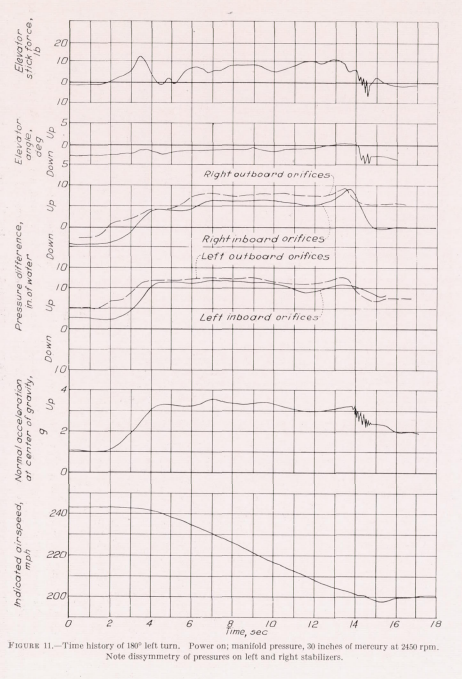 Elevator
stick force,
lb
20
10
0
10
Elevator
angle,
deg
Down Up
5
0
5
Right outboard orifices
Pressure difference,
in. of water
Down Up
10
0
Right inboard orifices
Left outboard orifices
10
Down Up
10
0
10
Left inboard orifices
Normal acceleration
at center of gravity,
g
Up
4
2
0
Indicated airspeed,
mph
240
220
200
0 2 4 6 8 10 12 14 16 18
Time, sec
FIGURE 11.—Time history of 180° left turn. Power on; manifold pressure, 30 inches of mercury at 2450 rpm.
Note dissymmetry of pressures on left and right stabilizers.